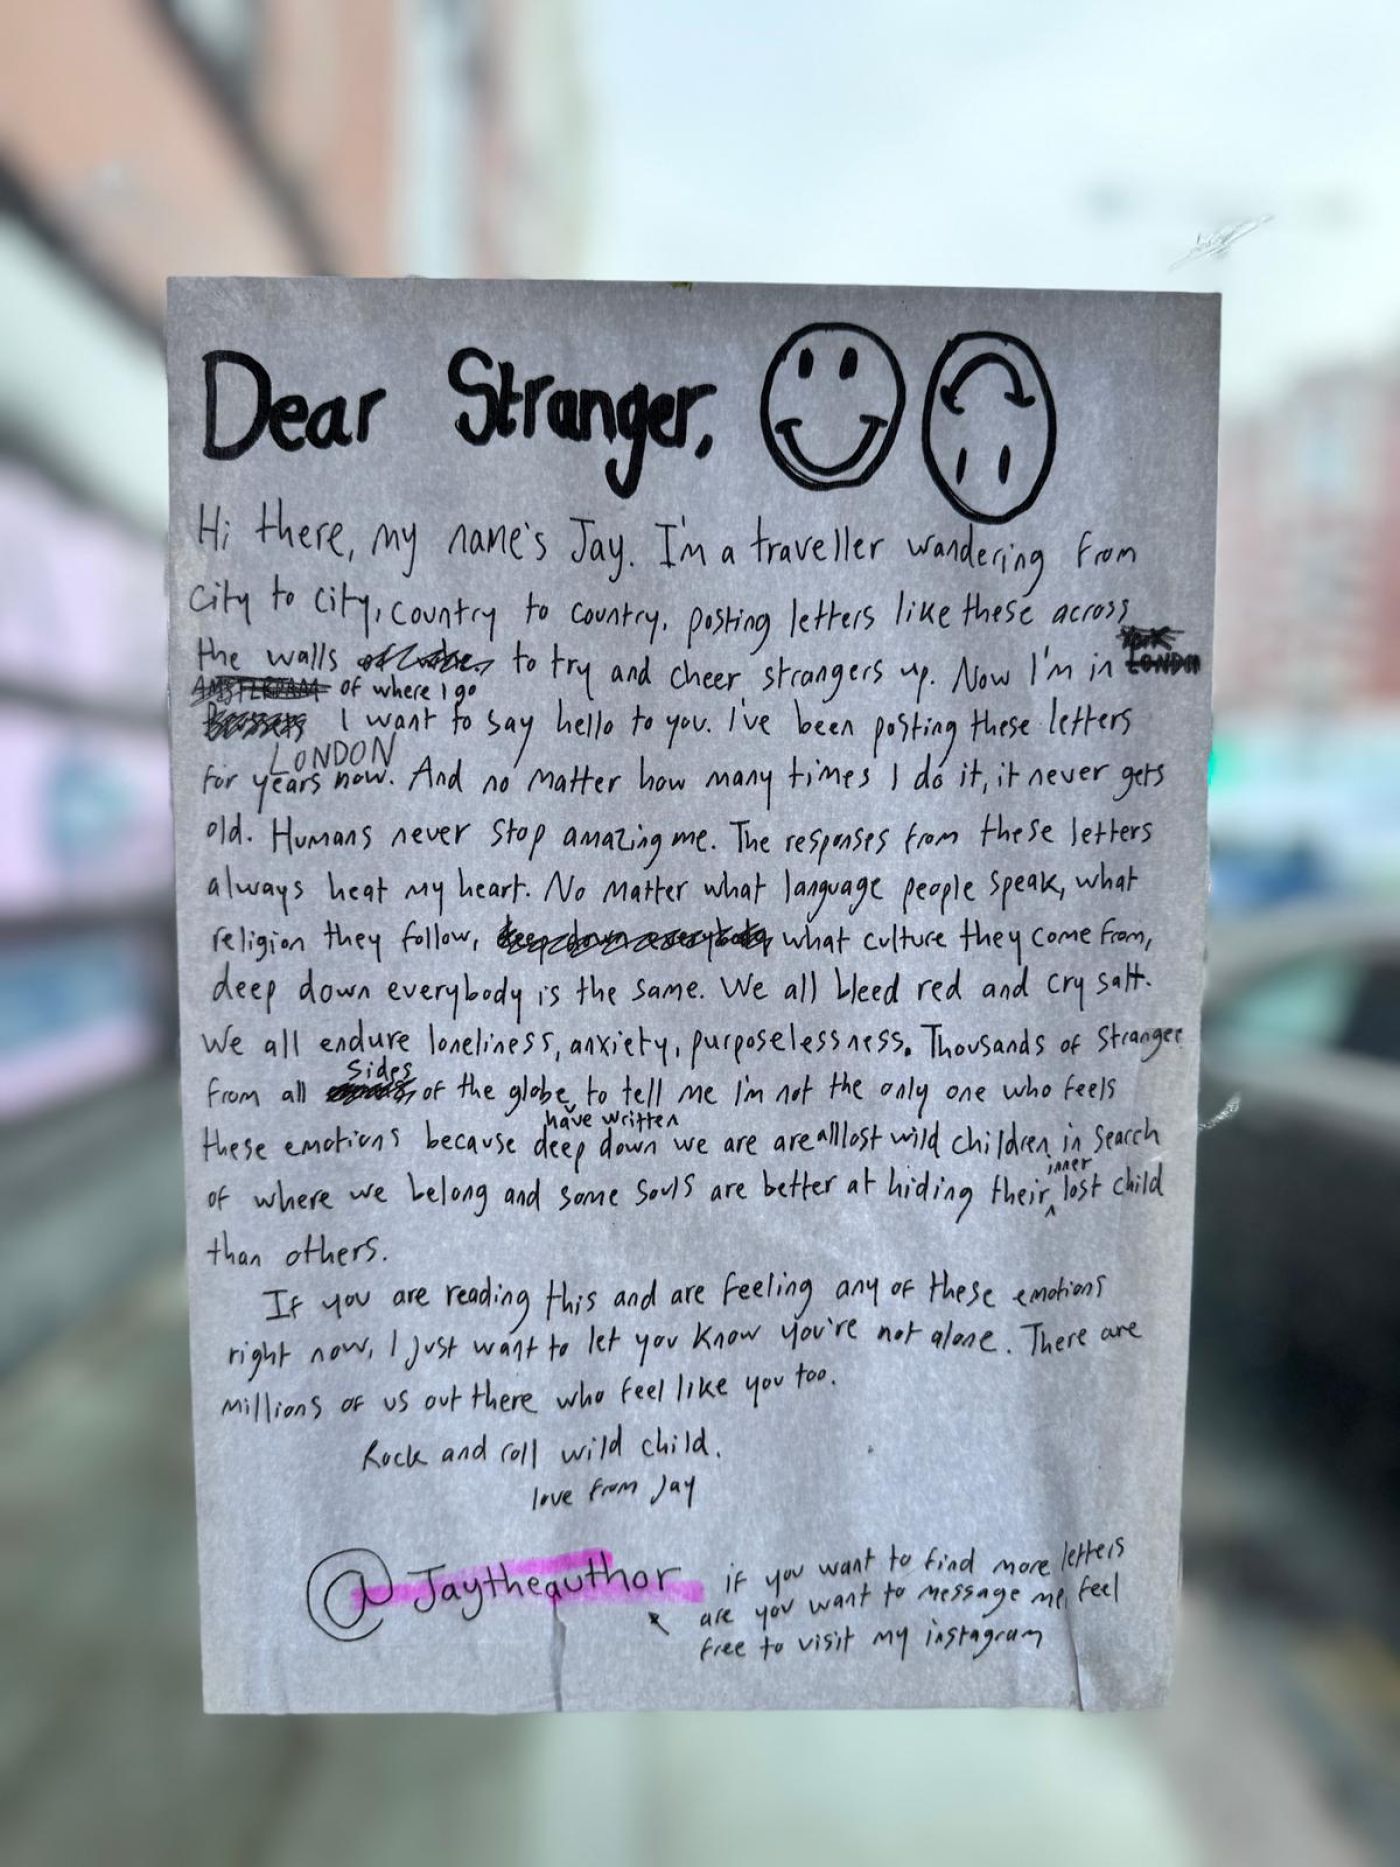 Dear Stranger,
Hi there, my name's Jay. I'm a traveller wandering from
city to city, country to country, posting letters like these across
the walls to try and cheer strangers up. Now I'm in LONDON
AMSTERDAM of where I go
I want to say hello to you. I've been posting these letters
LONDON
for years now. And no matter how many times I do it, it never gets
old. Humans never stop amazing me. The responses from these letters
always heat my heart. No matter what language people speak, what
religion they follow, deep down everybody what culture they come from,
deep down everybody is the same. We all bleed red and cry salt.
We all endure loneliness, anxiety, purposelessness. Thousands of stranger
sides
from all of the globe to tell me I'm not the only one who feels
have written
these emotions because deep down we are are all lost wild children in search
inner
of where we belong and some souls are better at hiding their lost child
than others.
If you are reading this and are feeling any of these emotions
right now, I just want to let you know you're not alone. There are
millions of us out there who feel like you too.
Rock and roll wild child.
love from Jay
@Jaytheauthor
if you want to find more letters
are you want to message me, feel
free to visit my instagram